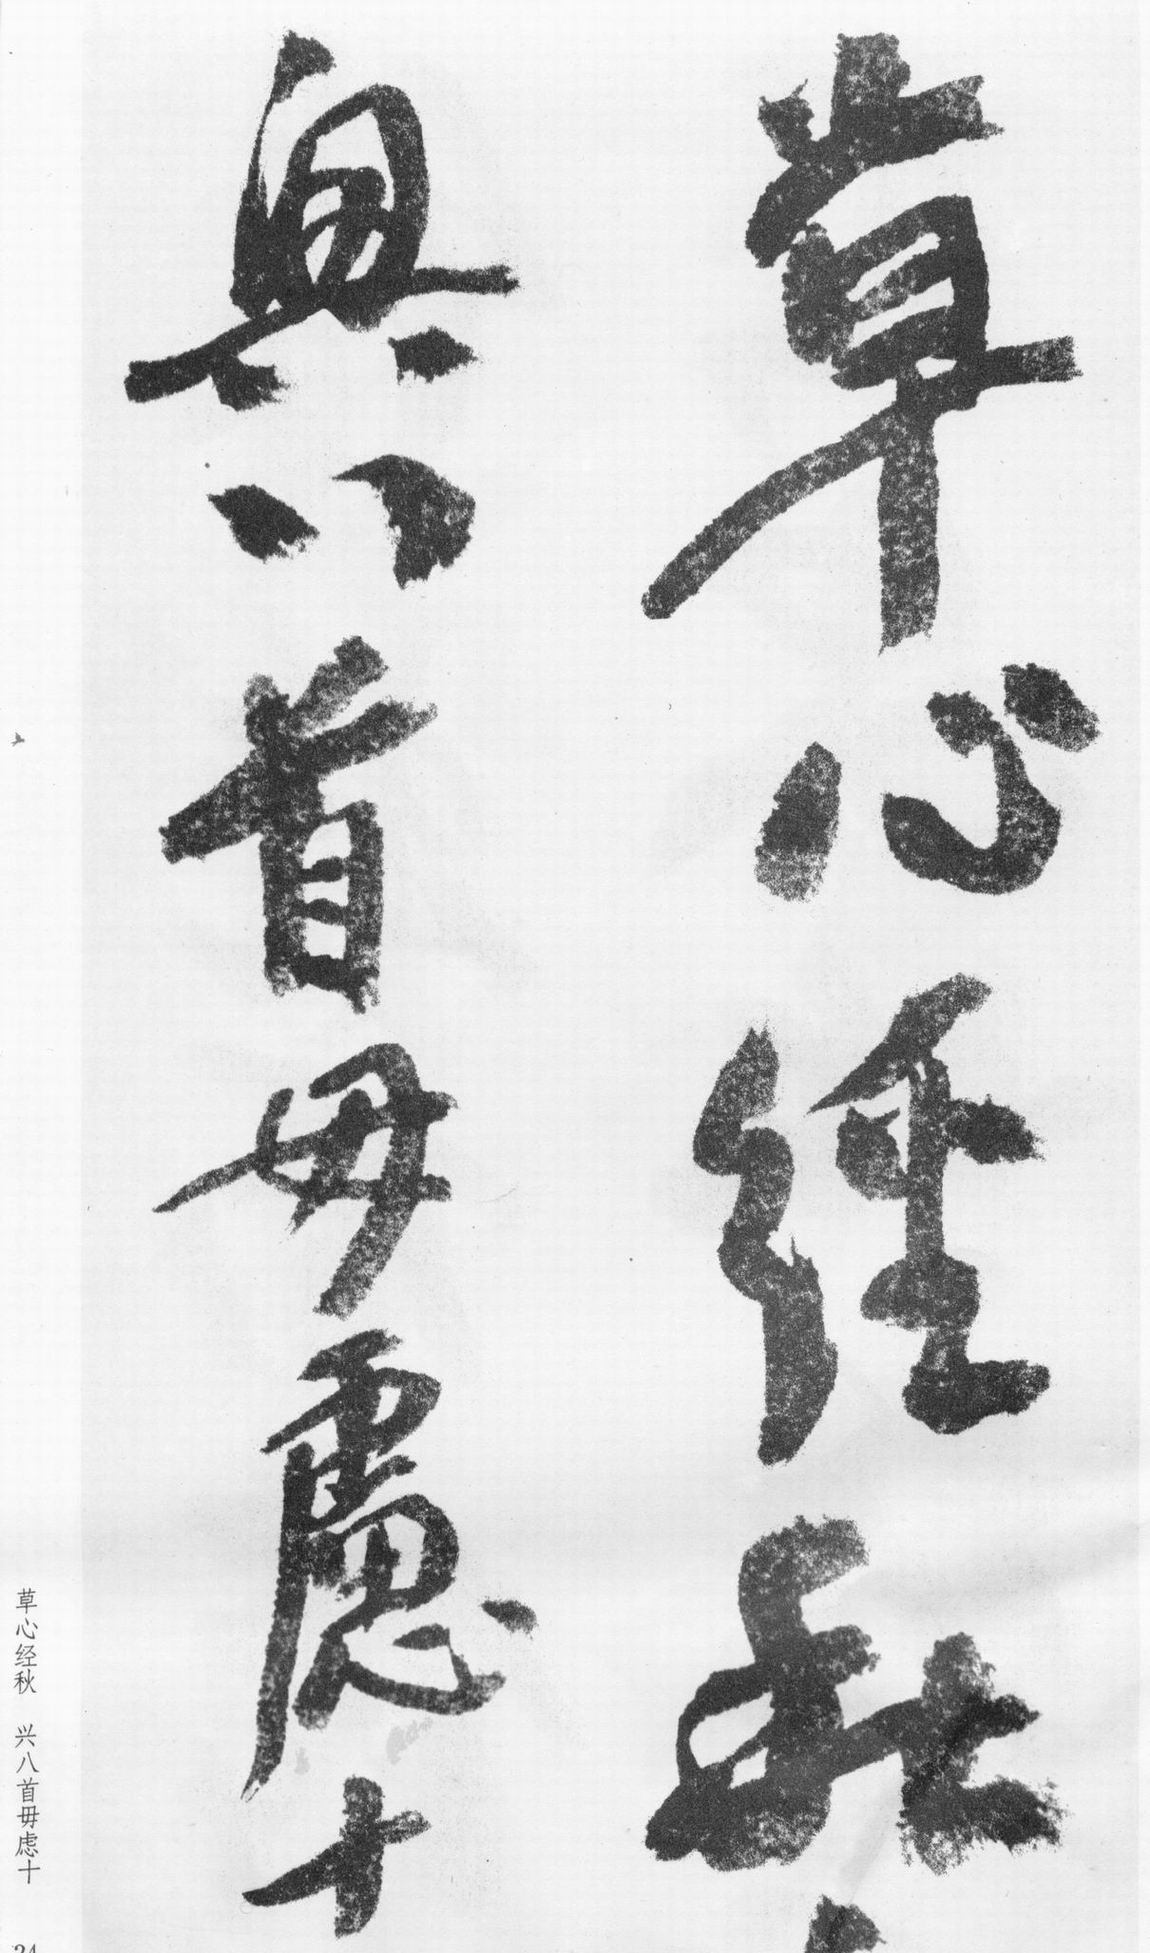 草心經秋
興八首毋慮十
草心经秋 兴八首毋虑十
24